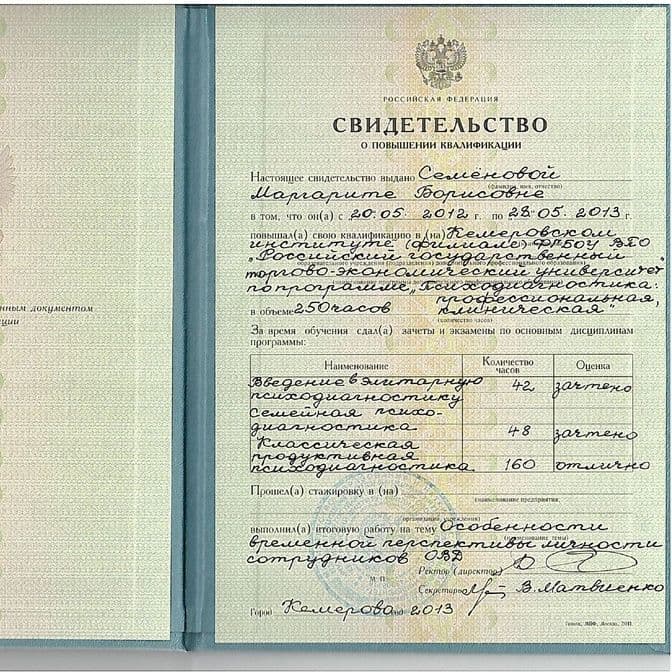 РОССИЙСКАЯ ФЕДЕРАЦИЯ
СВИДЕТЕЛЬСТВО
О ПОВЫШЕНИИ КВАЛИФИКАЦИИ
Настоящее свидетельство выдано Семёновой
(фамилия, имя, отчество)
Маргарите Борисовне
в том, что он(а) с 20.05 2012 г. по 28.05. 2013 г.
повышал(а) свою квалификацию в (на) Кемеровском
институте (филиале) ФГБОУ ВПО
"Российский государственный
торгово-экономический университет"
по программе "Психодиагностика:
профессиональная,
в объеме 250 часов клиническая"
(количество часов)
За время обучения сдал(а) зачеты и экзамены по основным дисциплинам
программы:
Наименование Количество часов Оценка
Введение в элитарную 42 зачтено
психодиагностику
Семейная психо-
диагностика 48 зачтено
Классическая
продуктивная
психодиагностика 160 отлично
Прошел(а) стажировку в (на)
(наименование предприятия,
организации, учреждения)
выполнил(а) итоговую работу на тему Особенности
(наименование темы)
временной перспективы личности
сотрудников ОВД
Ректор (директор)
М П
Секретарь В. Матвиенко
Город Кемерово год 2013
нным документом
ции